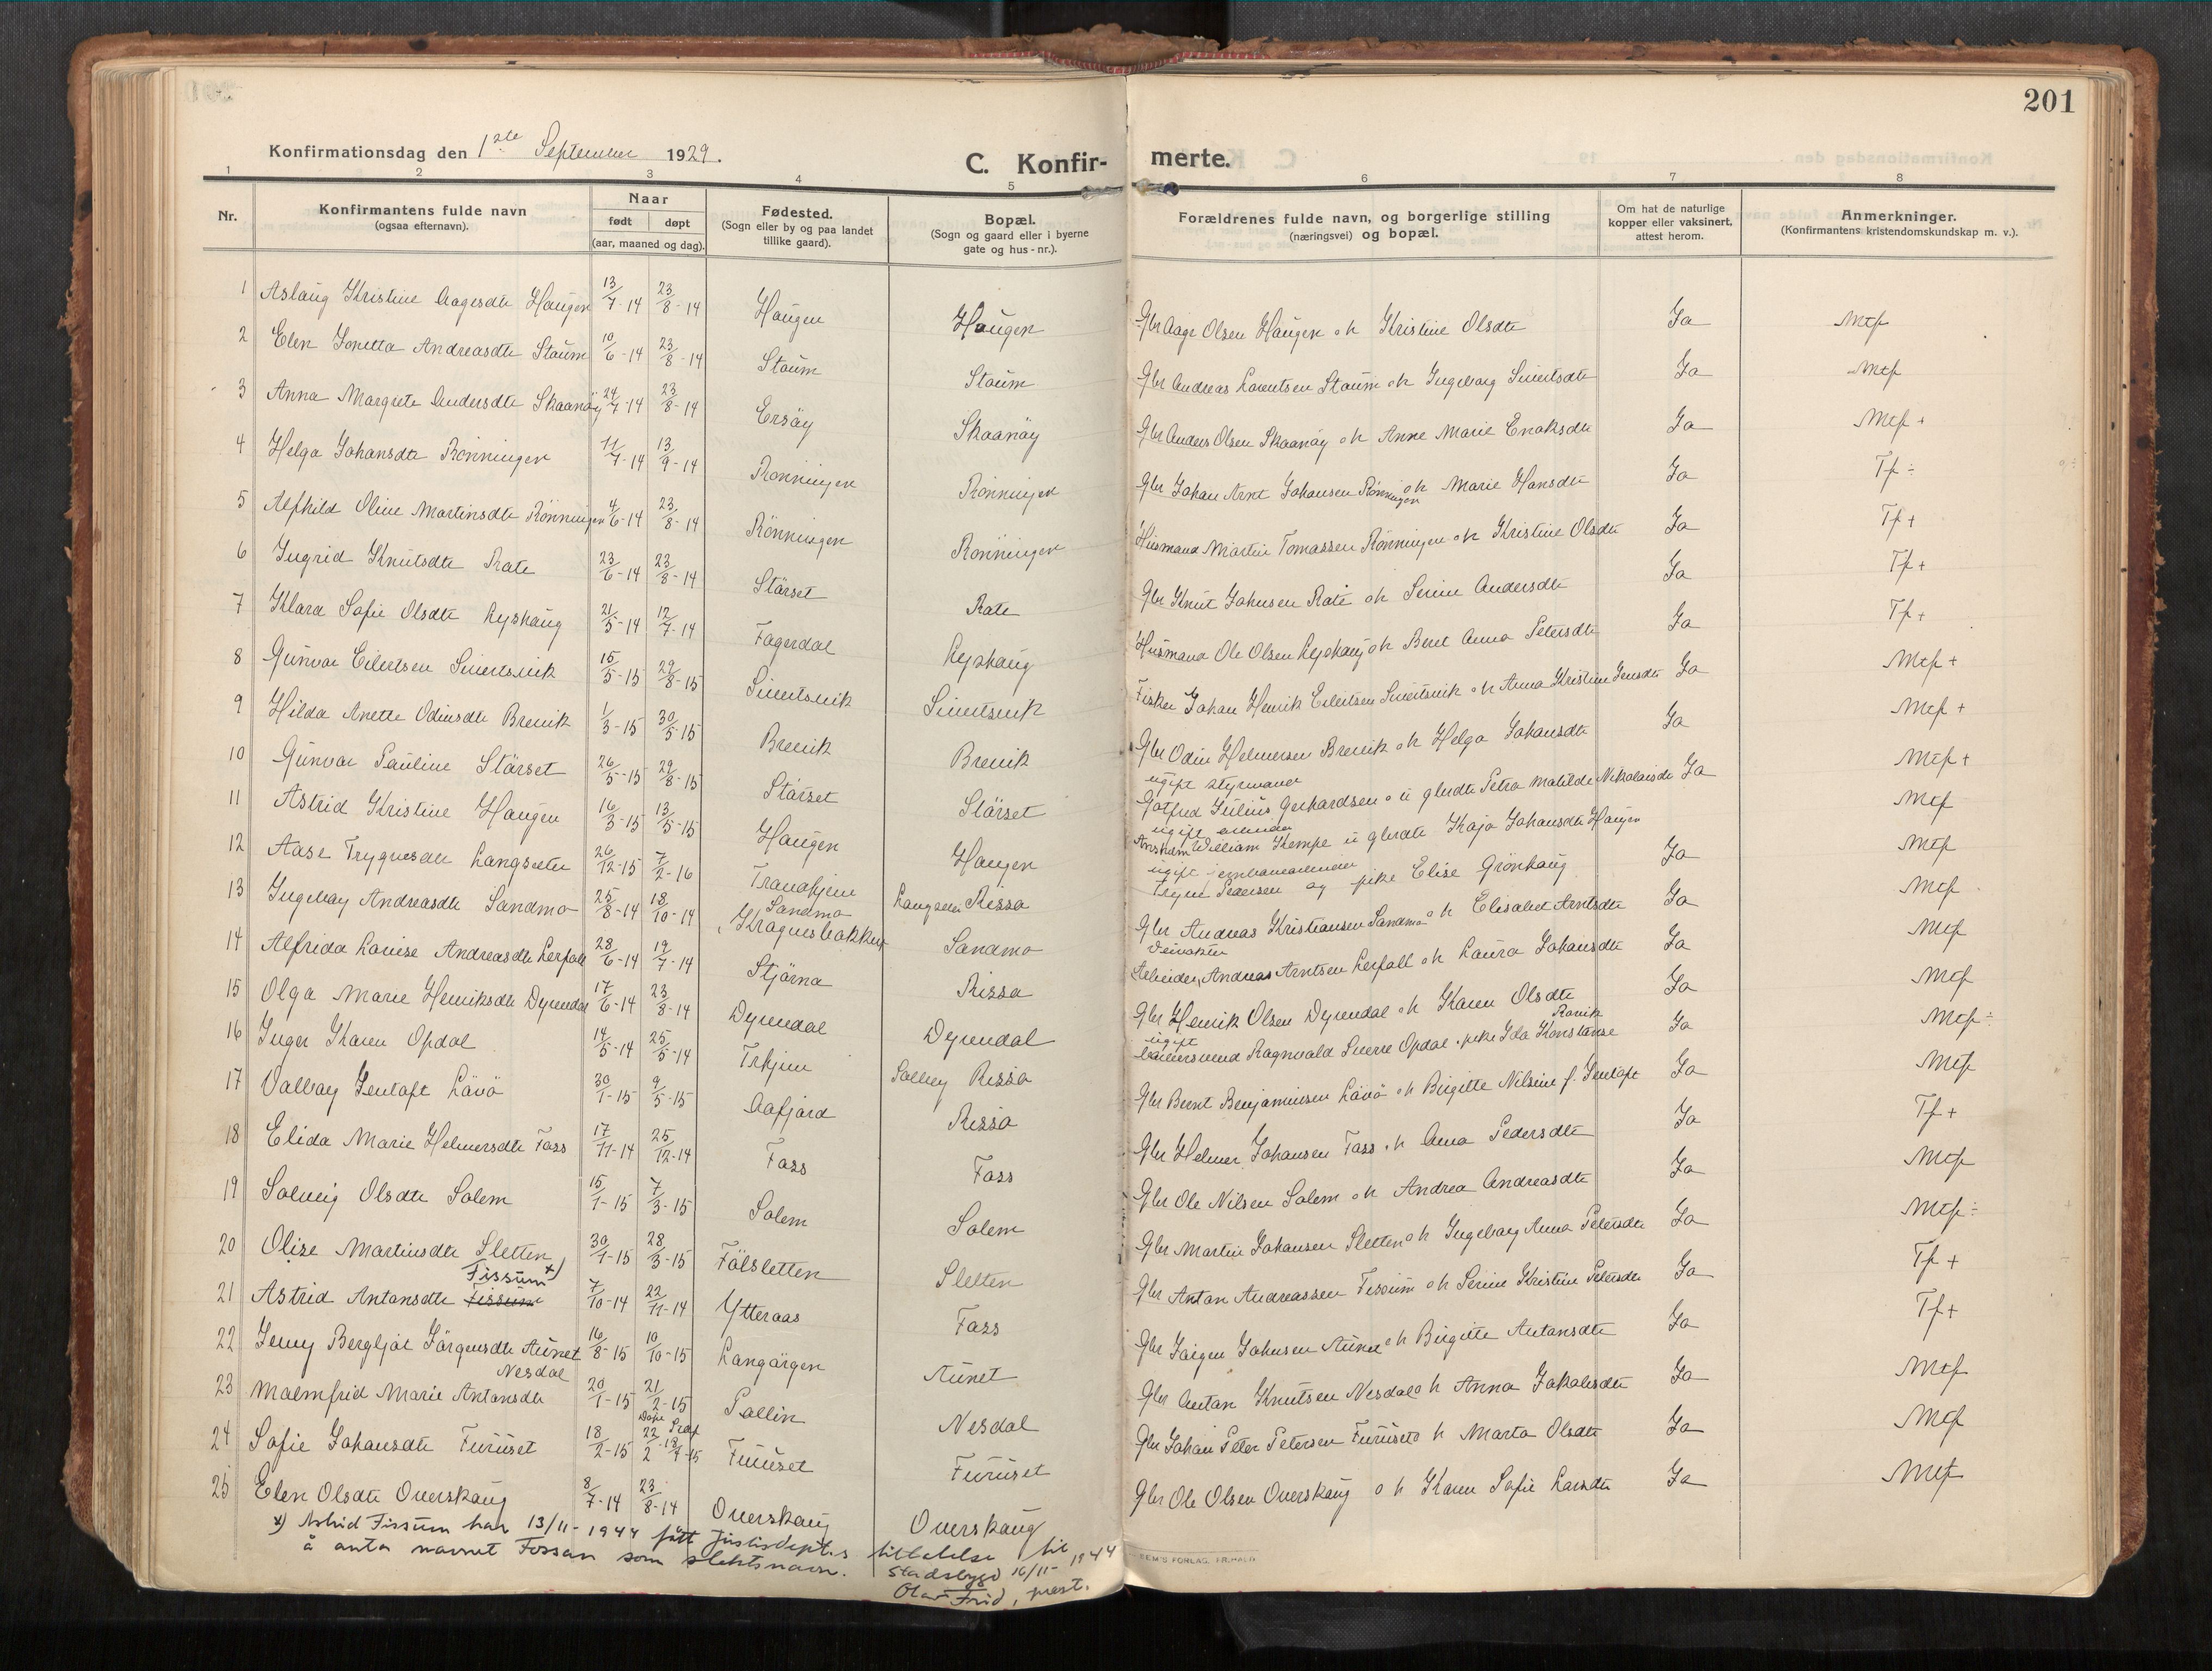 201
Konfirmationsdag den 1ste September 1929.
C. Konfir- merte.
1 2 3 4 5 6 7 8
Nr.
Konfirmantens fulde navn
(ogsaa efternavn).
Naar
født døpt
(aar, maaned og dag).
Fødested.
(Sogn eller by og paa landet
tillike gaard).
Bopæl.
(Sogn og gaard eller i byerne
gate og hus-nr.).
Forældrenes fulde navn, og borgerlige stilling
(næringsvei) og bopæl.
Om hat de naturlige
kopper eller vaksinert,
attest herom.
Anmerkninger.
(Konfirmantens kristendomskundskap m. v.).
1 Aslaug Kristine Aagesdtr Haugen 13/7-14 23/8-14 Haugen Haugen Gbr Aage Olsen Haugen o h Kristine Olsdtr Ja Mtf
2 Elen Jonetta Andreasdtr Staum 10/6-14 23/8-14 Staum Staum Gbr Andreas Lorentsen Staum o h Ingeborg Sivertsdtr Ja Mtf
3 Anna Margrete Andersdtr Skaanøy 24/7-14 23/8-14 Ersøy Skaanøy Gbr Anders Olsen Skaanøy o h Anne Marie Enoksdtr Ja Mtf +
4 Helga Johansdtr Rönningen 11/7-14 13/9-14 Rönningen Rönningen Gbr Johan Arnt Johansen Rönningen o h Marie Hansdtr Ja Tf ÷
5 Alfhild Oline Martinsdtr Rönningen 4/6-14 23/8-14 Rönningen Rönningen Husmand Martin Tomassen Rönningen o h Kristine Olsdtr Ja Tf +
6 Ingrid Knutsdtr Rate 23/6-14 23/8-14 Störset Rate Gbr Knut Johnsen Rate o h Serine Andersdtr Ja Tf +
7 Klara Sofie Olsdtr Lyshaug 21/5-14 12/7-14 Fagerdal Lyshaug Husmand Ole Olsen Lyshaug o h Beret Anna Petersdtr Ja Tf +
8 Gunvor Eilertsen Sivertsvik 15/5-15 29/8-15 Sivertsvik Sivertsvik Fisker Johan Henrik Eilertsen Sivertsvik o h Anna Kristine Jensdtr Ja Mtf +
9 Hilda Anette Odinsdtr Brevik 1/3-15 30/5-15 Brevik Brevik Gbr Odin Helmersen Brevik o h Helga Johansdtr Ja Mtf +
10 Gunvor Pauline Störset 26/5-15 29/8-15 Störset Störset ugift styrmand
Gotfred Julius Gerhardsen o u gbrdtr Petra Matilde Nikolaisdtr Ja Mtf +
11 Astrid Kristine Haugen 16/3-15 13/5-15 Haugen Haugen ugift
William Kempe u gbrdtr Kaja Johansdtr Haugen Mtf
12 Aase Trygvesdtr Langsæter 26/12-15 7/2-16 Trondhjem Langsæter Rissa ugift
Trygve Pedersen og pike Elise Grönhaug Ja Mtf
13 Ingeborg Andreasdtr Sandmo 25/8-14 18/10-14 Sandmo
Kraguesbakken Sandmo Gbr Andreas Kristiansen Sandmo o h Elisabet Arntsdtr Ja Mtf
14 Alfrida Lovise Andreasdtr Lerfall 28/6-14 19/7-14 Stjörna Rissa Veivokter
Arbeider, Andreas Arntsen Lerfall o h Laura Johansdtr Ja Mtf
15 Olga Marie Henriksdtr Dyrendal 17/6-14 23/8-14 Dyrendal Dyrendal Gbr Henrik Olsen Dyrendal o h Karen Olsdtr Ja Mtf
16 Inger Karen Opdal 14/5-14 25/5-14 Trhjem Solberg Rissa ugift
Ragnvald Sverre Opdal o pike Ida Konstanse Ranvik Ja Mtf ÷
17 Valborg Gentoft Lövö 30/1-15 9/5-15 Aafjord Rissa Gbr Bernt Benjaminsen Lövö o h Birgitte Nilsine f. Gentoft Ja Mtf
18 Elida Marie Helmersdtr Fass 17/11-14 25/12-14 Fass Fass Gbr Helmer Johansen Fass o h Anna Pedersdtr Ja Tf +
19 Solveig Olsdtr Solem 15/1-15 7/3-15 Solem Solem Gbr Ole Nilsen Solem o h Andrea Andreasdtr Ja Mtf
20 Olise Martinsdtr Sletten 30/1-15 28/3-15 Fölsletten Sletten Gbr Martin Johansen Sletten o h Ingeborg Anna Petersdtr Ja Mtf ÷
Fissum x)
21 Astrid Antonsdtr Fissum 7/10-14 22/11-14 Ytteraas Fass Gbr Anton Andreassen Fissum o h Serine Kristine Petersdtr Ja Tf +
22 Jenny Bergljot Jörgensdtr Aunet 16/8-15 10/10-15 Langörgen Aunet Gbr Jörgen Johnsen Aunet o h Birgitte Antonsdtr Ja Tf +
Nesdal
23 Malmfrid Marie Antonsdtr 20/1-15 21/2-15 Pallin Nesdal Gbr Anton Knutsen Nesdal o h Anna Jakobsdtr Ja Mtf
24 Sofie Johansdtr Furuset 18/2-15 22/2 18/4-15 Furuset Furuset Gbr Johan Peter Petersen Furuset o h Marta Olsdtr Ja Mtf
25 Elen Olsdtr Overskaug 8/7-14 23/8-14 Overskaug Overskaug Gbr Ole Olsen Overskaug o h Karen Sofie Larsdtr Ja Mtf
x) Astrid Fissum har 13/11-1944 fått Justisdepts tillatelse til
å anta navnet Fossan som slektsnavn.
Stadsbygd 16/11-1944
Olav Frid, prest.
SEM'S FORLAG, FR.HALD